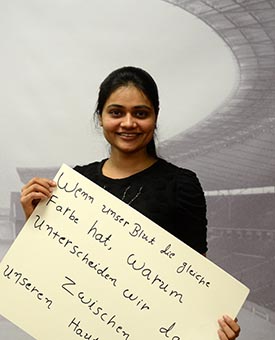 Wenn unser Blut die gleiche
Farbe hat, Warum
Unterscheiden wir da
Zwischen
unseren